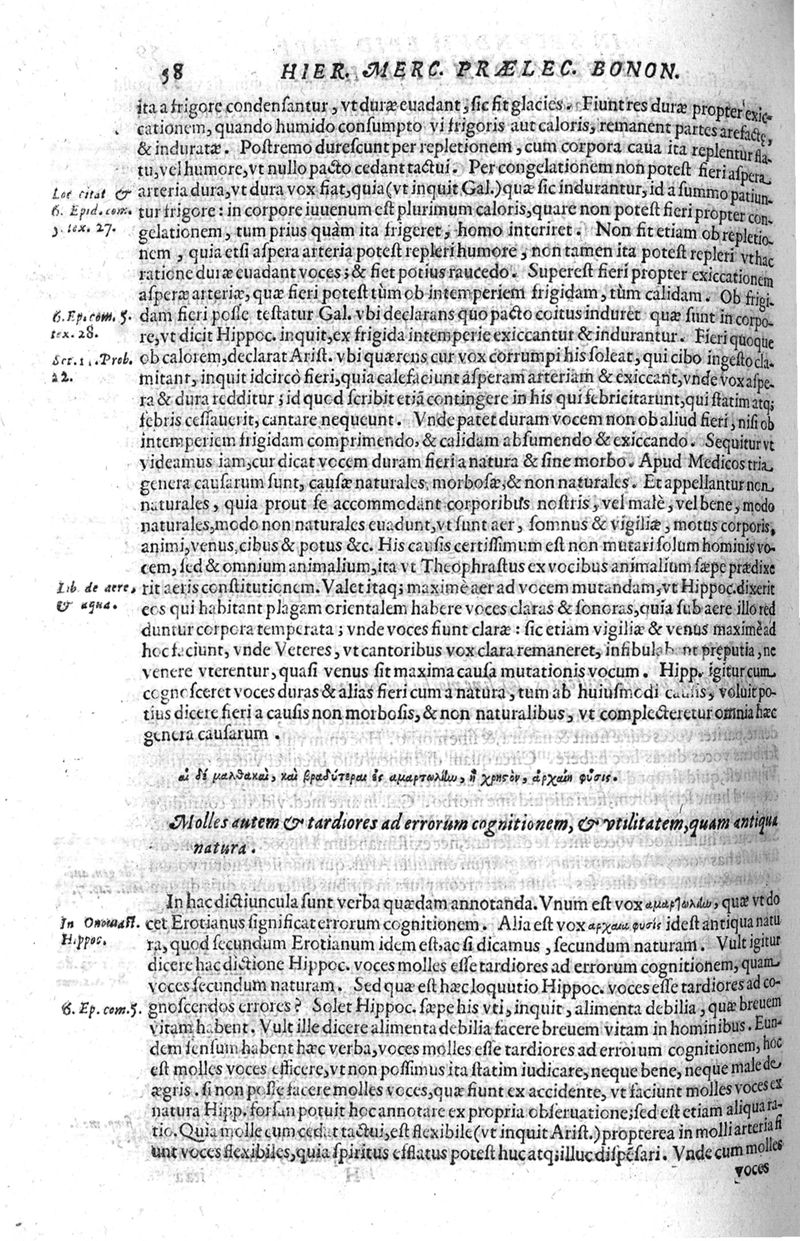 58 HIER. MERC. PRÆLEC. BONON.
ita a frigore condensantur, vt duræ euadant, sic fit glacies. Fiunt res duræ propter exic-
cationem, quando humido consumpto vi frigoris aut caloris, remanent partes arefactæ,
& induratæ. Postremo durescunt per repletionem, cum corpora caua ita replentur fla-
tu, vel humore, vt nullo pacto cedant tactui. Per congelationem non potest fieri aspera
Loc citat &
arteria dura, vt dura vox fiat, quia (vt inquit Gal.) quæ sic indurantur, id a summo patiun-
6. Epid. com.
tur frigore: in corpore iuuenum est plurimum caloris, quare non potest fieri propter con-
5 tex. 27.
gelationem, tum prius quàm ita frigeret, homo interiret. Non fit etiam ob repletio-
nem, quia etsi aspera arteria potest repleri humore, non tamen ita potest repleri vt hac
ratione duræ euadant voces; & fiet potius raucedo. Superest fieri propter exiccationem
asperæ arteriæ, quæ fieri potest tùm ob intemperiem frigidam, tùm calidam. Ob frigi-
6. Ep. com. 5.
dam fieri posse testatur Gal. vbi declarans quo pacto coitus induret quæ sunt in corpo-
tex. 28.
re, vt dicit Hippoc. inquit, ex frigida intemperie exiccantur & indurantur. Fieri quoque
Ser. 11. Prob.
ob calorem, declarat Arist. vbi quærens cur vox corrumpi his soleat, qui cibo ingesto cla-
22.
mitant, inquit idcircò fieri, quia calefaciunt asperam arteriam & exiccant, vnde vox aspe-
ra & dura redditur; id quod scribit etiã contingere in his qui febricitarunt, qui statim atq;
febris cessauerit, cantare nequeunt. Vnde patet duram vocem non ob aliud fieri, nisi ob
intemperiem frigidam comprimendo, & calidam absumendo & exiccando. Sequitur vt
videamus iam, cur dicat vocem duram fieri a natura & sine morbo. Apud Medicos tria
genera causarum sunt, causæ naturales, morbosæ, & non naturales. Et appellantur non
naturales, quia prout se accommodant corporibus nostris, vel malè, vel bene, modo
naturales, modo non naturales euadunt, vt sunt aer, somnus & vigiliæ, motus corporis,
animi, venus, cibus & potus &c. His causis certissimum est non mutari solum hominis vo-
cem, sed & omnium animalium, ita vt Theophrastus ex vocibus animalium sæpe prædixe
Lib. de aere,
rit aeris constitutionem. Valet itaq; maximè aer ad vocem mutandam, vt Hippoc. dixerit
& aqua.
eos qui habitant plagam orientalem habere voces claras & sonoras, quia sub aere illo red
duntur corpora temperata; vnde voces fiunt claræ: sic etiam vigiliæ & venus maximè ad
hoc faciunt, vnde Veteres, vt cantoribus vox clara remaneret, infibulabant preputia, ne
venere vterentur, quasi venus sit maxima causa mutationis vocum. Hipp. igitur cum
cognosceret voces duras & alias fieri cum a natura, tum ab huiusmodi causis, voluit po-
tius dicere fieri a causis non morbosis, & non naturalibus, vt complecteretur omnia hæc
genera causarum.
αἱ δέ μαλθακαὶ, καὶ βραδύτεραι ἐς αμαρτωλίω, ἢ χρηςὸν, ἀρχαίη φύσις.
Molles autem & tardiores ad errorum cognitionem, & vtilitatem, quam antiqua
natura.
In hac dictiuncula sunt verba quædam annotanda. Vnum est vox αμαρτωλίω, quæ vt do
In Onomast.
cet Erotianus significat errorum cognitionem. Alia est vox αρχαια φυσις idest antiqua natu
Hippoc.
ra, quod secundum Erotianum idem est, ac si dicamus, secundum naturam. Vult igitur
dicere hac dictione Hippoc. voces molles esse tardiores ad errorum cognitionem, quam
voces secundum naturam. Sed quæ est hæc loquutio Hippoc. voces esse tardiores ad co-
6. Ep. com. 5.
gnoscendos errores? Solet Hippoc. sæpe his vti, inquit, alimenta debilia, quæ breuem
vitam habent. Vult ille dicere alimenta debilia facere breuem vitam in hominibus. Eun-
dem sensum habent hæc verba, voces molles esse tardiores ad errorum cognitionem, hoc
est molles voces efficere, vt non possimus ita statim iudicare, neque bene, neque male de
ægris. si non posse facere molles voces, quæ fiunt ex accidente, vt faciunt molles voces ex
natura Hipp. forsan potuit hoc annotare ex propria obseruatione; sed est etiam aliqua ra-
tio. Quia molle cum cedat tactui, est flexibile (vt inquit Arist.) propterea in molli arteria fi
unt voces flexibiles, quia spiritus efflatus potest huc atq; illuc dispẽsari. Vnde cum molles
voces